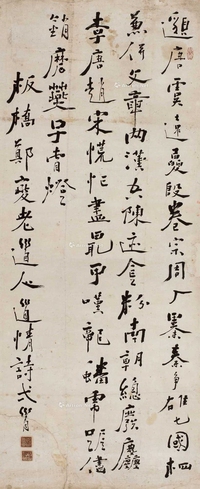 邈唐虞遠夏殷卷宗周入暴秦爭雄七國相
兼併文章兩漢空陳迹金粉南朝總廢塵
李唐趙宋慌忙盡最可嘆龍蟠虎踞盡
銷磨燕子春燈
板橋鄭燮老道人道情詩